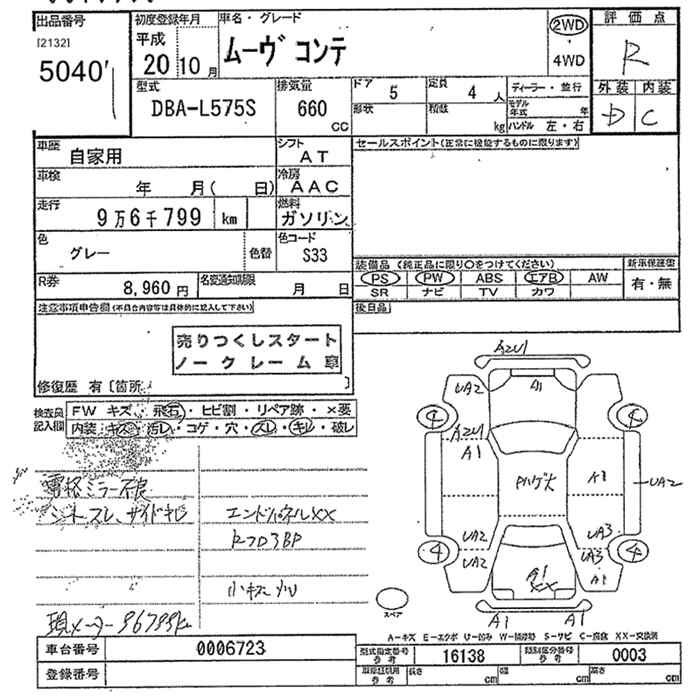 出品番号 初度登録年月 車名・グレード 2WD 評価点
[2132] 平成 ムーヴ コンテ 4WD R
5040 20 10月
型式 排気量 ドア 5 定員 4人 ディーラー・並行 外装 内装
DBA-L575S 660 CC 形状 積数 kg モデル年式 年 D C
ハンドル 左・右
車歴 自家用 シフト AT セールスポイント(正常に機能するものに限ります)
車検 年 月( 日) 冷房 AAC
走行 9万6千799 km 燃料 ガソリン
色 グレー 色替 色コード S33
装備品 (純正品に限り○をつけてください) 新車保証書
R券 8,960円 名変通知期限 月 日 PS PW ABS エアB AW 有・無
SR ナビ TV カワ
注意事項申告欄(不具合内容等は具体的に記入して下さい) 後日品
売りつくしスタート
ノークレーム 車
修復歴 有〔箇所 〕
検査員記入欄 FW キズ・飛石・ヒビ割・リペア跡・×要
内装・キズ・汚レ・コゲ・穴・スレ・キレ・破レ
電格ミラー不良
シートスレ、サイドキレ エンドパネルXX
小キズ 凹
現メーター 96799km
AZU1
UA2 A1
4 4
AZU1
A1 Pハゲ大 UA2
UA2 UA3
4 UA2 UA3 4
A1 A1
XX
スペア A1 A1
A-キズ E-エクボ U-凹み W-補修跡 S-サビ C-腐食 XX-交換済
車台番号 0006723 型式指定番号 参考 16138 類別区分番号 参考 0003
登録番号 参考 長さ cm 幅 cm 高さ cm